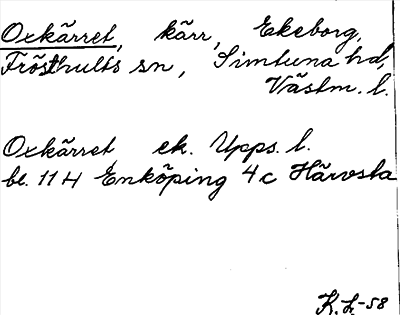 Oxkärret, kärr, Ekeborg,
Frösthults sn, Simtuna hd,
Västm. l.
Oxkärret ek. Upps. l.
bl. 11 H Enköping 4 c Härvsta
K. L-58